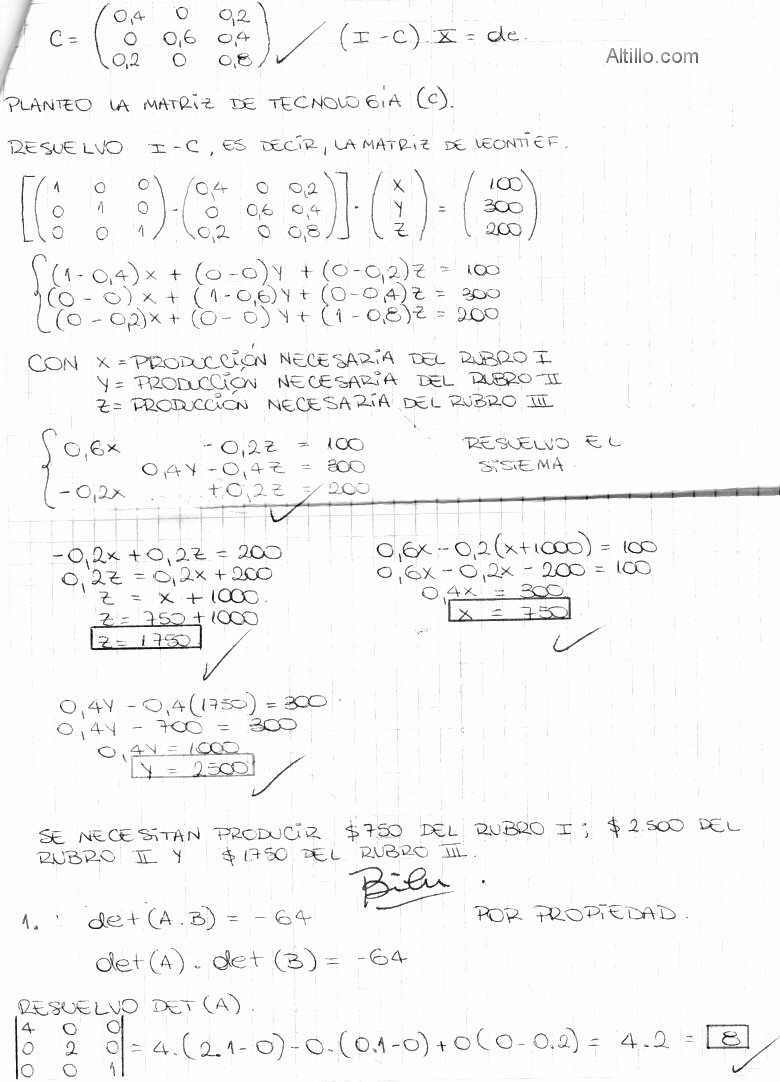 C = ( 0,4 0 0,2
0 0,6 0,4
0,2 0 0,8 ) (I - C) . X = de.
Altillo.com
PLANTEO LA MATRIZ DE TECNOLOGÍA (C).
RESUELVO I - C, ES DECIR, LA MATRIZ DE LEONTIEF.
[( 1 0 0
0 1 0
0 0 1 ) - ( 0,4 0 0,2
0 0,6 0,4
0,2 0 0,8 )] . ( X
Y
Z ) = ( 100
300
200 )
(1 - 0,4)X + (0 - 0)Y + (0 - 0,2)Z = 100
(0 - 0)X + (1 - 0,6)Y + (0 - 0,4)Z = 300
(0 - 0,2)X + (0 - 0)Y + (1 - 0,8)Z = 200
CON X = PRODUCCIÓN NECESARIA DEL RUBRO I
Y = PRODUCCIÓN NECESARIA DEL RUBRO II
Z = PRODUCCIÓN NECESARIA DEL RUBRO III
0,6X - 0,2Z = 100 RESUELVO EL
0,4Y - 0,4Z = 300 SISTEMA.
-0,2X + 0,2Z = 200
-0,2X + 0,2Z = 200
0,2Z = 0,2X + 200
Z = X + 1000.
Z = 750 + 1000
Z = 1750
0,6X - 0,2(X + 1000) = 100
0,6X - 0,2X - 200 = 100
0,4X = 300
X = 750
0,4Y - 0,4(1750) = 300
0,4Y - 700 = 300
0,4Y = 1000
Y = 2500
SE NECESITAN PRODUCIR $750 DEL RUBRO I; $2.500 DEL
RUBRO II Y $1750 DEL RUBRO III.
1. det(A.B) = -64 POR PROPIEDAD.
det(A) . det(B) = -64
RESUELVO DET(A).
| 4 0 0
0 2 0
0 0 1 | = 4.(2.1-0) - 0.(0.1-0) + 0(0-0.2) = 4.2 = 8